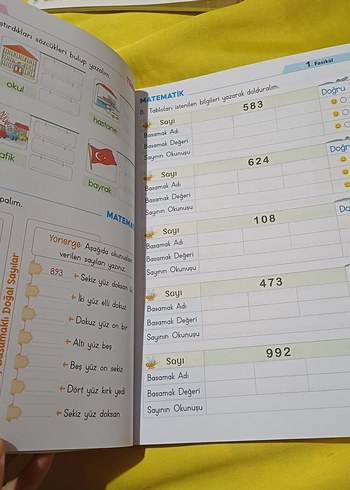 ştırdıkları sözcükleri bulup yazalım.
okul
hastane
afik
bayrak
palım.
MATEMA
Yönerge Aşağıda okunuşları
verilen sayıları yazınız.
Basamaklı Doğal Sayılar
893 Sekiz yüz doksan üç
İki yüz elli dokuz
Dokuz yüz on bir
Altı yüz beş
Beş yüz on sekiz
Dört yüz kırk yedi
Sekiz yüz doksan
1. Fasikül
MATEMATİK
8. Tabloları istenilen bilgileri yazarak dolduralım.
Doğru
Sayı 583
Basamak Adı
Basamak Değeri
Sayının Okunuşu
Doğr
Sayı 624
Basamak Adı
Basamak Değeri
Sayının Okunuşu
Do
Sayı 108
Basamak Adı
Basamak Değeri
Sayının Okunuşu
Sayı 473
Basamak Adı
Basamak Değeri
Sayının Okunuşu
Sayı 992
Basamak Adı
Basamak Değeri
Sayının Okunuşu